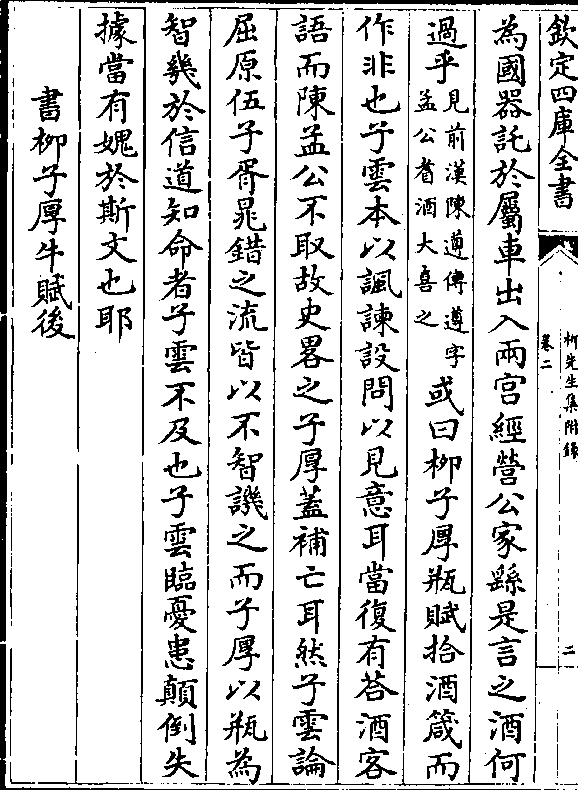 欽定四庫全書
柳先生集附録
卷二
二
為國器託於屬車出入兩宫經營公家繇是言之酒何
過乎見前漢陳遵傳遵字孟公耆酒大喜之或曰柳子厚瓶賦拾酒箴而
作非也子雲本以諷諫設問以見意耳當復有荅酒客
語而陳孟公不取故史畧之子厚蓋補亡耳然子雲論
屈原伍子胥鼂錯之流皆以不智譏之而子厚以瓶為
智幾於信道知命者子雲不及也子雲臨憂患顛倒失
據當有媿於斯文也耶
書柳子厚牛賦後